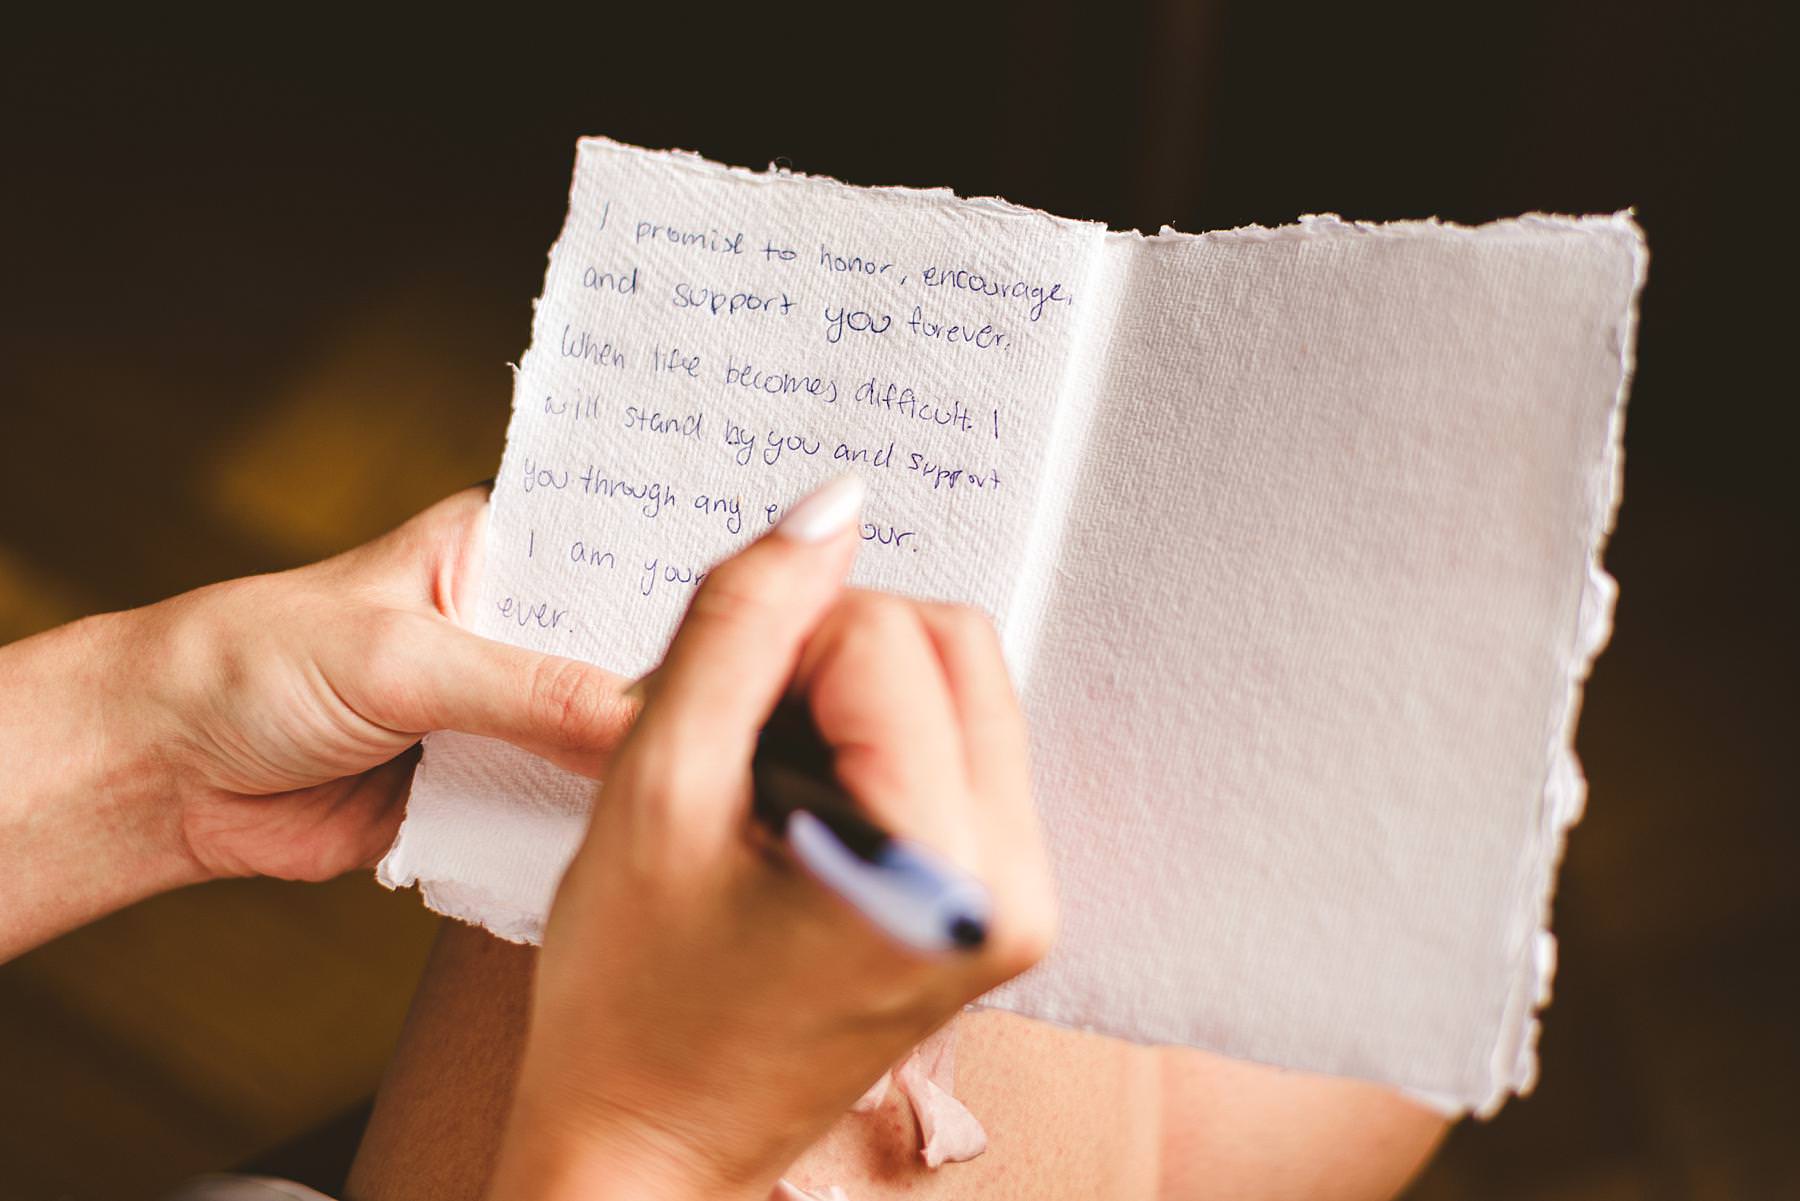 I promise to honor, encourage,
and support you forever.
When life becomes difficult. I
will stand by you and support
you through any
I am
ever.